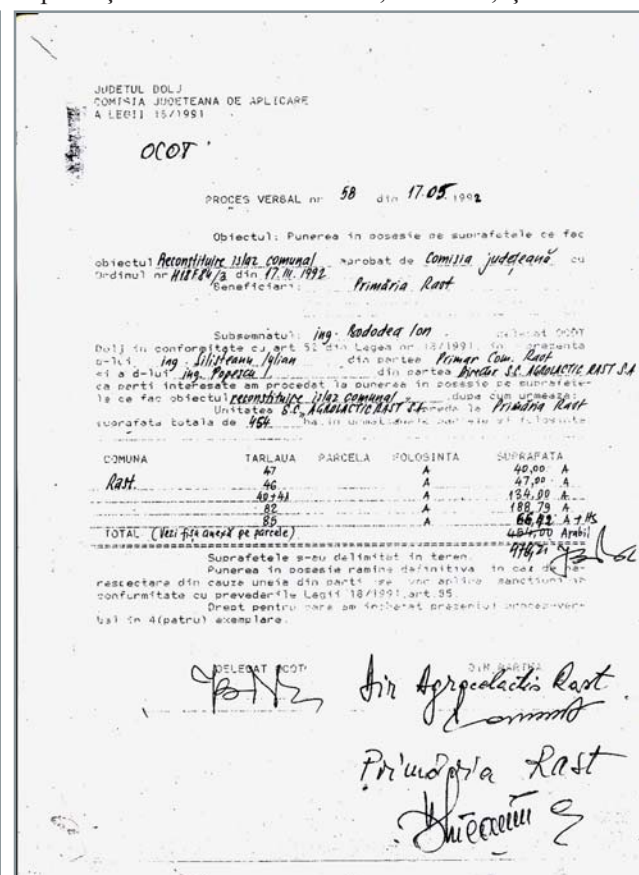 JUDETUL DOLJ
COMISIA JUDETEANA DE APLICARE
A LEGII 15/1991
OCOT
PROCES VERBAL nr 58 din 17.05.1992
Obiectul: Punerea in posesie pe suprafetele ce fac
obiectul Reconstituire islaz comunal aprobat de Comisia județeană cu
Ordinul nr din 17.III.1992
Beneficiar: Primăria Rast
Subsemnatul: ing. Bododea Ion delegat OCOT
Dolj in conformitate cu art 52 din Legea nr 18/1991, in prezenta
d-lui ing Silisteanu Iulian din partea Primar Com. Rast
si a d-lui ing. Popescu I din partea Director S.C. AGROLACTIC RAST S.A
ca parti interesate am procedat la punerea in posesie pe suprafete-
le ce fac obiectul reconstituire islaz comunal dupa cum urmeaza:
Unitatea S.C. AGROLACTIC RAST S.A. la Primăria Rast
suprafata totala de 454 ha in
COMUNA TARLAUA PARCELA FOLOSINTA SUPRAFATA
47 A 40,00 A
Rast. 46 A 47,00 A
40+41 A 134,00 A
82 A 188,79 A
85 A 66,42 A + Hs
TOTAL (Vezi fișa anexă pe parcele) Arabil
Suprafetele s-au delimitat in teren.
Punerea in posesie ramine definitiva in caz de ne-
respectare din cauza uneia din parti se vor aplica sanctiuni in
conformitate cu prevederile Legii 18/1991.art.95.
Drept pentru care am incheiat prezentul proces-ver-
bal in 4(patru) exemplare.
DELEGAT OCOT DIN PARTEA
Primăria Rast